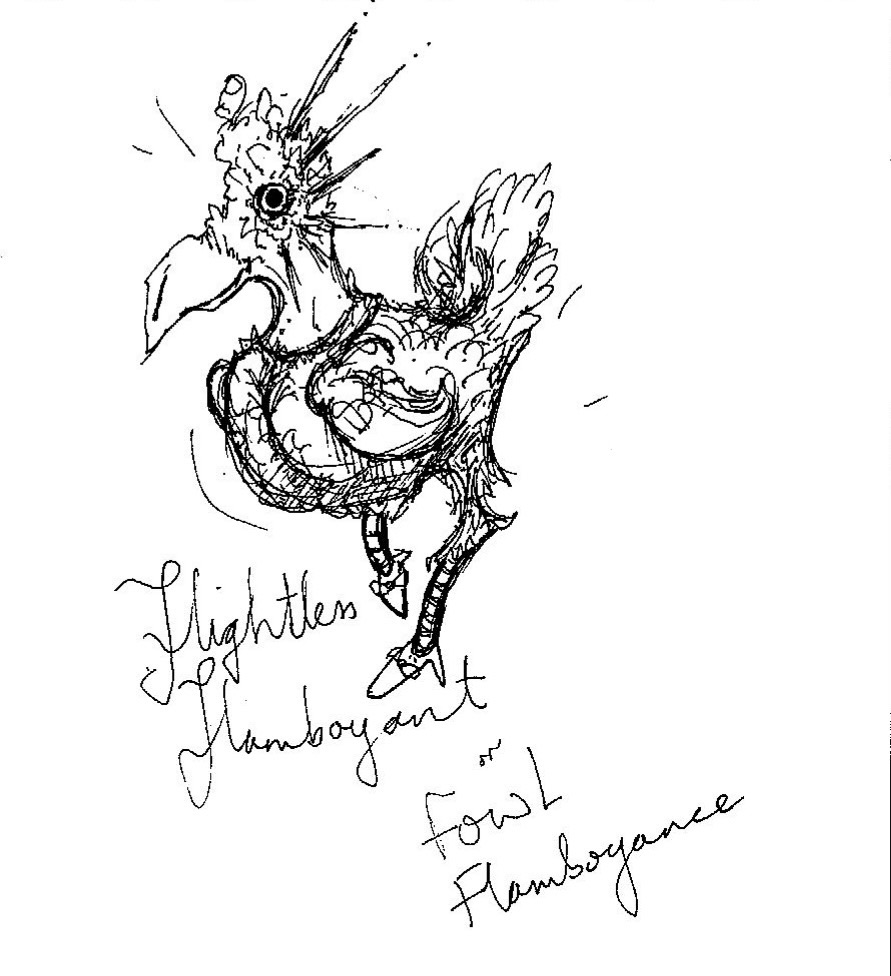 Flightless
Flamboyant
or
Fowl
Flamboyance